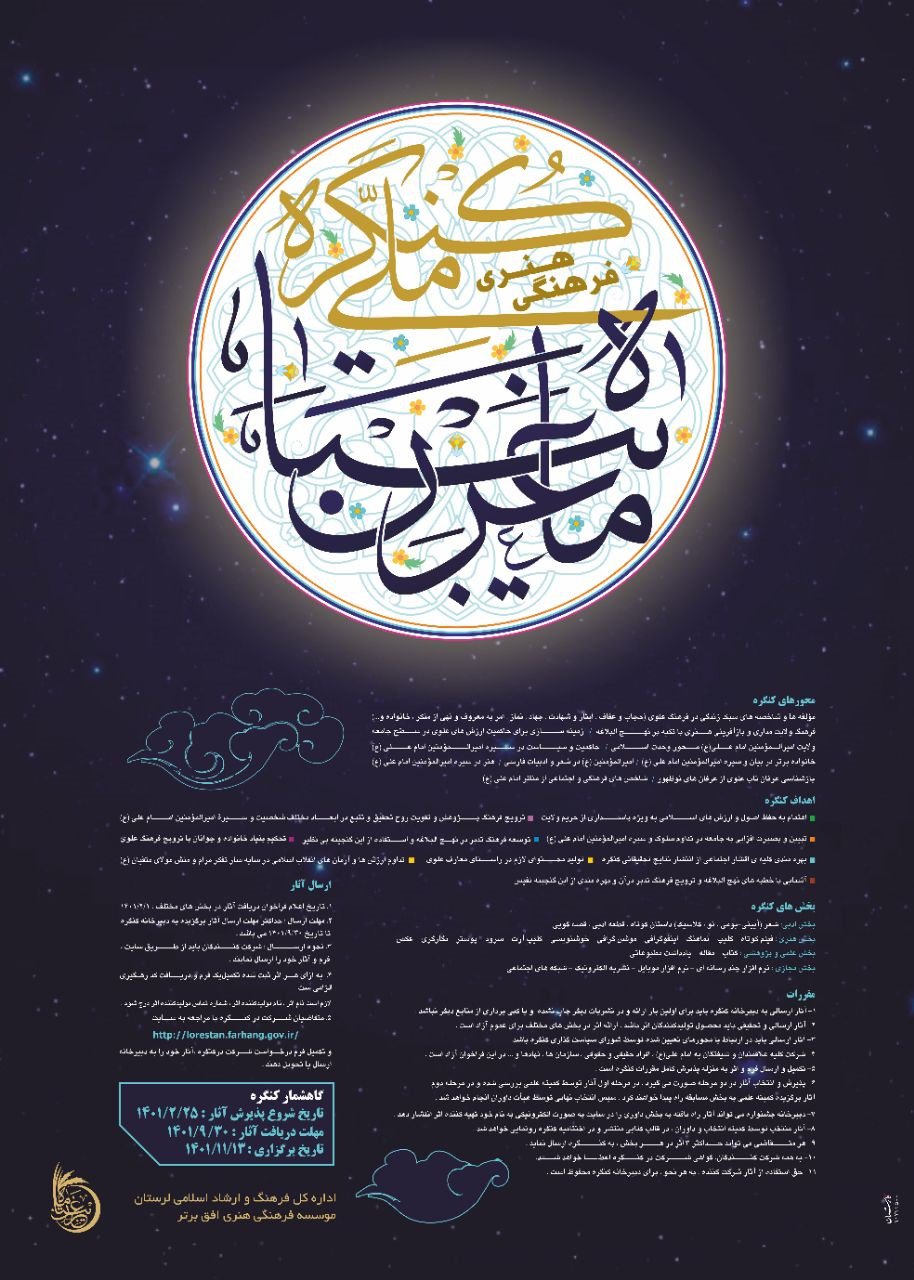 کنگره ملی
فرهنگی هنری
ماه
محورهای کنگره
مؤلفه ها و شاخصه های سبک زندگی در فرهنگ علوی (حجاب و عفاف ، ایثار و شهادت ، جهاد، نماز، امر به معروف و نهی از منکر ، خانواده و...)
فرهنگ ولایت مداری و بازآفرینی هنری با تکیه بر نهج البلاغه / زمینه سازی برای حاکمیت ارزش های علوی در سطح جامعه
ولایت امیرالمؤمنین امام علی(ع) محور وحدت اسلامی / حاکمیت و سیاست در سیره امیرالمؤمنین امام علی (ع)
خانواده برتر در بیان و سیره امیرالمؤمنین امام علی (ع) / امیرالمؤمنین (ع) در شعر و ادبیات فارسی / هنر در سیره امیرالمؤمنین امام علی (ع)
بازشناسی عرفان ناب علوی از عرفان های نوظهور / شاخص های فرهنگی و اجتماعی از منظر امام علی (ع)
اهداف کنگره
اهتمام به حفظ اصول و ارزش های اسلامی به ویژه پاسداری از حریم ولایت ترویج فرهنگ پژوهش و تقویت روح تحقیق و تتبع در ابعاد مختلف شخصیت و سیرۀ امیرالمؤمنین امام علی (ع)
تبیین و بصیرت افزایی به جامعه در تداوم سلوک و سیره امیرالمؤمنین امام علی (ع) توسعه فرهنگ تدبر در نهج البلاغه و استفاده از این گنجینه بی نظیر تحکیم بنیاد خانواده و جوانان با ترویج فرهنگ علوی
بهره مندی کلیه ی اقشار اجتماعی از انتشار نتایج تحقیقاتی کنگره تولید محتوای لازم در راستای معارف علوی تداوم ارزش ها و آرمان های انقلاب اسلامی در سایه سار تفکر مرام و منش مولای متقیان (ع)
آشنایی با خطبه های نهج البلاغه و ترویج فرهنگ تدبر در آن و بهره مندی از این گنجینه نفیس
بخش های کنگره
بخش ادبی: شعر (آیینی-بومی ، نو ، کلاسیک) داستان کوتاه ، قطعه ادبی، قصه گویی
بخش هنری: فیلم کوتاه کلیپ نماهنگ اینفوگرافی موشن گرافی خوشنویسی کلیپ آرت سرود پوستر نگارگری عکس
بخش علمی و پژوهشی: کتاب مقاله یادداشت مطبوعاتی
بخش مجازی: نرم افزار چند رسانه ای - نرم افزار موبایل - نشریه الکترونیک - شبکه های اجتماعی
مقررات
۱- آثار ارسالی به دبیرخانه کنگره باید برای اولین بار ارائه و در نشریات دیگر چاپ نشده و یا کپی برداری از منابع دیگر نباشد
۲ آثار ارسالی و تحقیقی باید محصول تولیدکنندگان اثر باشد . ارائه اثر در بخش های مختلف برای عموم آزاد است .
۳- آثار ارسالی باید در ارتباط با محورهای تعیین شده توسط شورای سیاست گذاری کنگره باشد
۴ شرکت کلیه علاقمندان و شیفتگان به امام علی(ع) ، افراد حقیقی و حقوقی ، سازمان ها ، نهادها و... در این فراخوان آزاد است .
۵- تکمیل و ارسال فرم و اثر به منزله پذیرش کامل مقررات کنگره است .
۶ پذیرش و انتخاب آثار در دو مرحله صورت می گیرد . در مرحله اول آثار توسط کمیته علمی بررسی شده و در مرحله دوم
آثار برگزیده کمیته علمی به بخش مسابقه راه پیدا خواهند کرد . سپس انتخاب نهایی توسط هیأت داوران انجام خواهد شد .
۷- دبیرخانه جشنواره می تواند آثار راه یافته به بخش داوری را در سایت به صورت الکترونیکی به نام خود تهیه کننده اثر انتشار دهد .
۸- آثار منتخب توسط کمیته انتخاب و داوران ، در قالب کتابی منتشر و در اختتامیه کنگره رونمایی خواهد شد
۹ هر متقاضی می تواند حداکثر ۳ اثر در هر بخش ، به کنگره ارسال نماید .
۱۰- به همه شرکت کنندگان، گواهی شرکت در کنگره اعطا خواهد شد.
۱۱ حق استفاده از آثار شرکت کننده ، به هر نحو ، برای دبیرخانه کنگره محفوظ است .
ارسال آثار
۱. تاریخ اعلام فراخوان دریافت آثار در بخش های مختلف : ۱۴۰۱/۲/۱
۲. مهلت ارسال : حداکثر مهلت ارسال آثار برگزیده به دبیرخانه کنگره
تا تاریخ ۱۴۰۱/۹/۳۰ می باشد .
۳. نحوه ارسال : شرکت کنندگان باید از طریق سایت ،
فرم و آثار خود را ارسال نمایند .
۴. به ازای هر اثر ثبت شده تکمیل یک فرم و دریافت کد رهگیری
الزامی است
لازم است نام اثر ، نام تولیدکننده اثر ، شماره تماس تولیدکننده اثر درج شود .
۵. متقاضیان شرکت در کنگره با مراجعه به سایت
http://lorestan.farhang.gov.ir/
و تکمیل فرم درخواست شرکت در کنگره ، آثار خود را به دبیرخانه
ارسال یا تحویل دهند .
گاهشمار کنگره
تاریخ شروع پذیرش آثار : ۱۴۰۱/۲/۲۵
مهلت دریافت آثار : ۱۴۰۱/۹/۳۰
تاریخ برگزاری : ۱۴۰۱/۱۱/۱۳
اداره کل فرهنگ و ارشاد اسلامی لرستان
موسسه فرهنگی هنری افق برتر